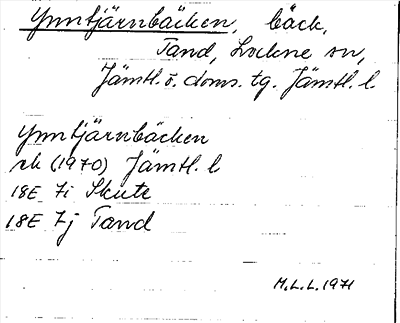 Ynntjärnbäcken, bäck,
Tand, Lockne sn,
Jämtl. ö. doms. tg. Jämtl. l.
Ynntjärnbäcken
rk (1970) Jämtl. l
18E 7i Skute
18E 7j Tand
M.L.L. 1971